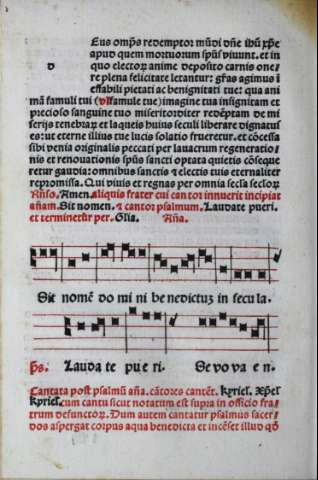 Eus omp̄s redemptor mūdi dn̄e ihū xp̄e
apud quem mortuorum sp̄us viuunt. et in
D quo electoꝝ anime deposito carnis one/
re plena felicitate letantur: gr̄as agimus i
effabili pietati ac benignitati tue: qua ani
mā famuli tui (vl̄ famule tue) imagine tua insignitam et
precioso sanguine tuo misericorditer redēptam de mi
serijs tenebraꝝ et laqueis huius seculi liberare dignatus
es: ut eterne illius tue lucis solatio frueretur. et cōcessa
sibi venia originalis peccati per lauacrum regeneratio/
nis et renouationis sp̄us sancti optata quietis cōseque
retur gaudia: omnibus sanctis ⁊ electis tuis eternaliter
repromissa. Qui viuis et regnas per omnia secl̄a secloꝝ
Rn̄so. Amen. aliquis frater cui cantor innuerit incipiat
añam. Sit nomen. ⁊ cantor psalmum. Laudate pueri.
et terminetur per. Glīa. Aña.
Sit nomē do mi ni be nedictuꝫ in secu la.
ps. Lauda te pu e ri. Se vo va e n.
Cantata post psalmū aña. cātores cantēt. kyriel. Xp̄el
kyriel. cum cantu sicut notatum est supra in officio fra/
trum defunctoꝝ. Dum autem cantatur psalmus sacer/
dos aspergat corpus aqua benedicta et incēset illud qd̄